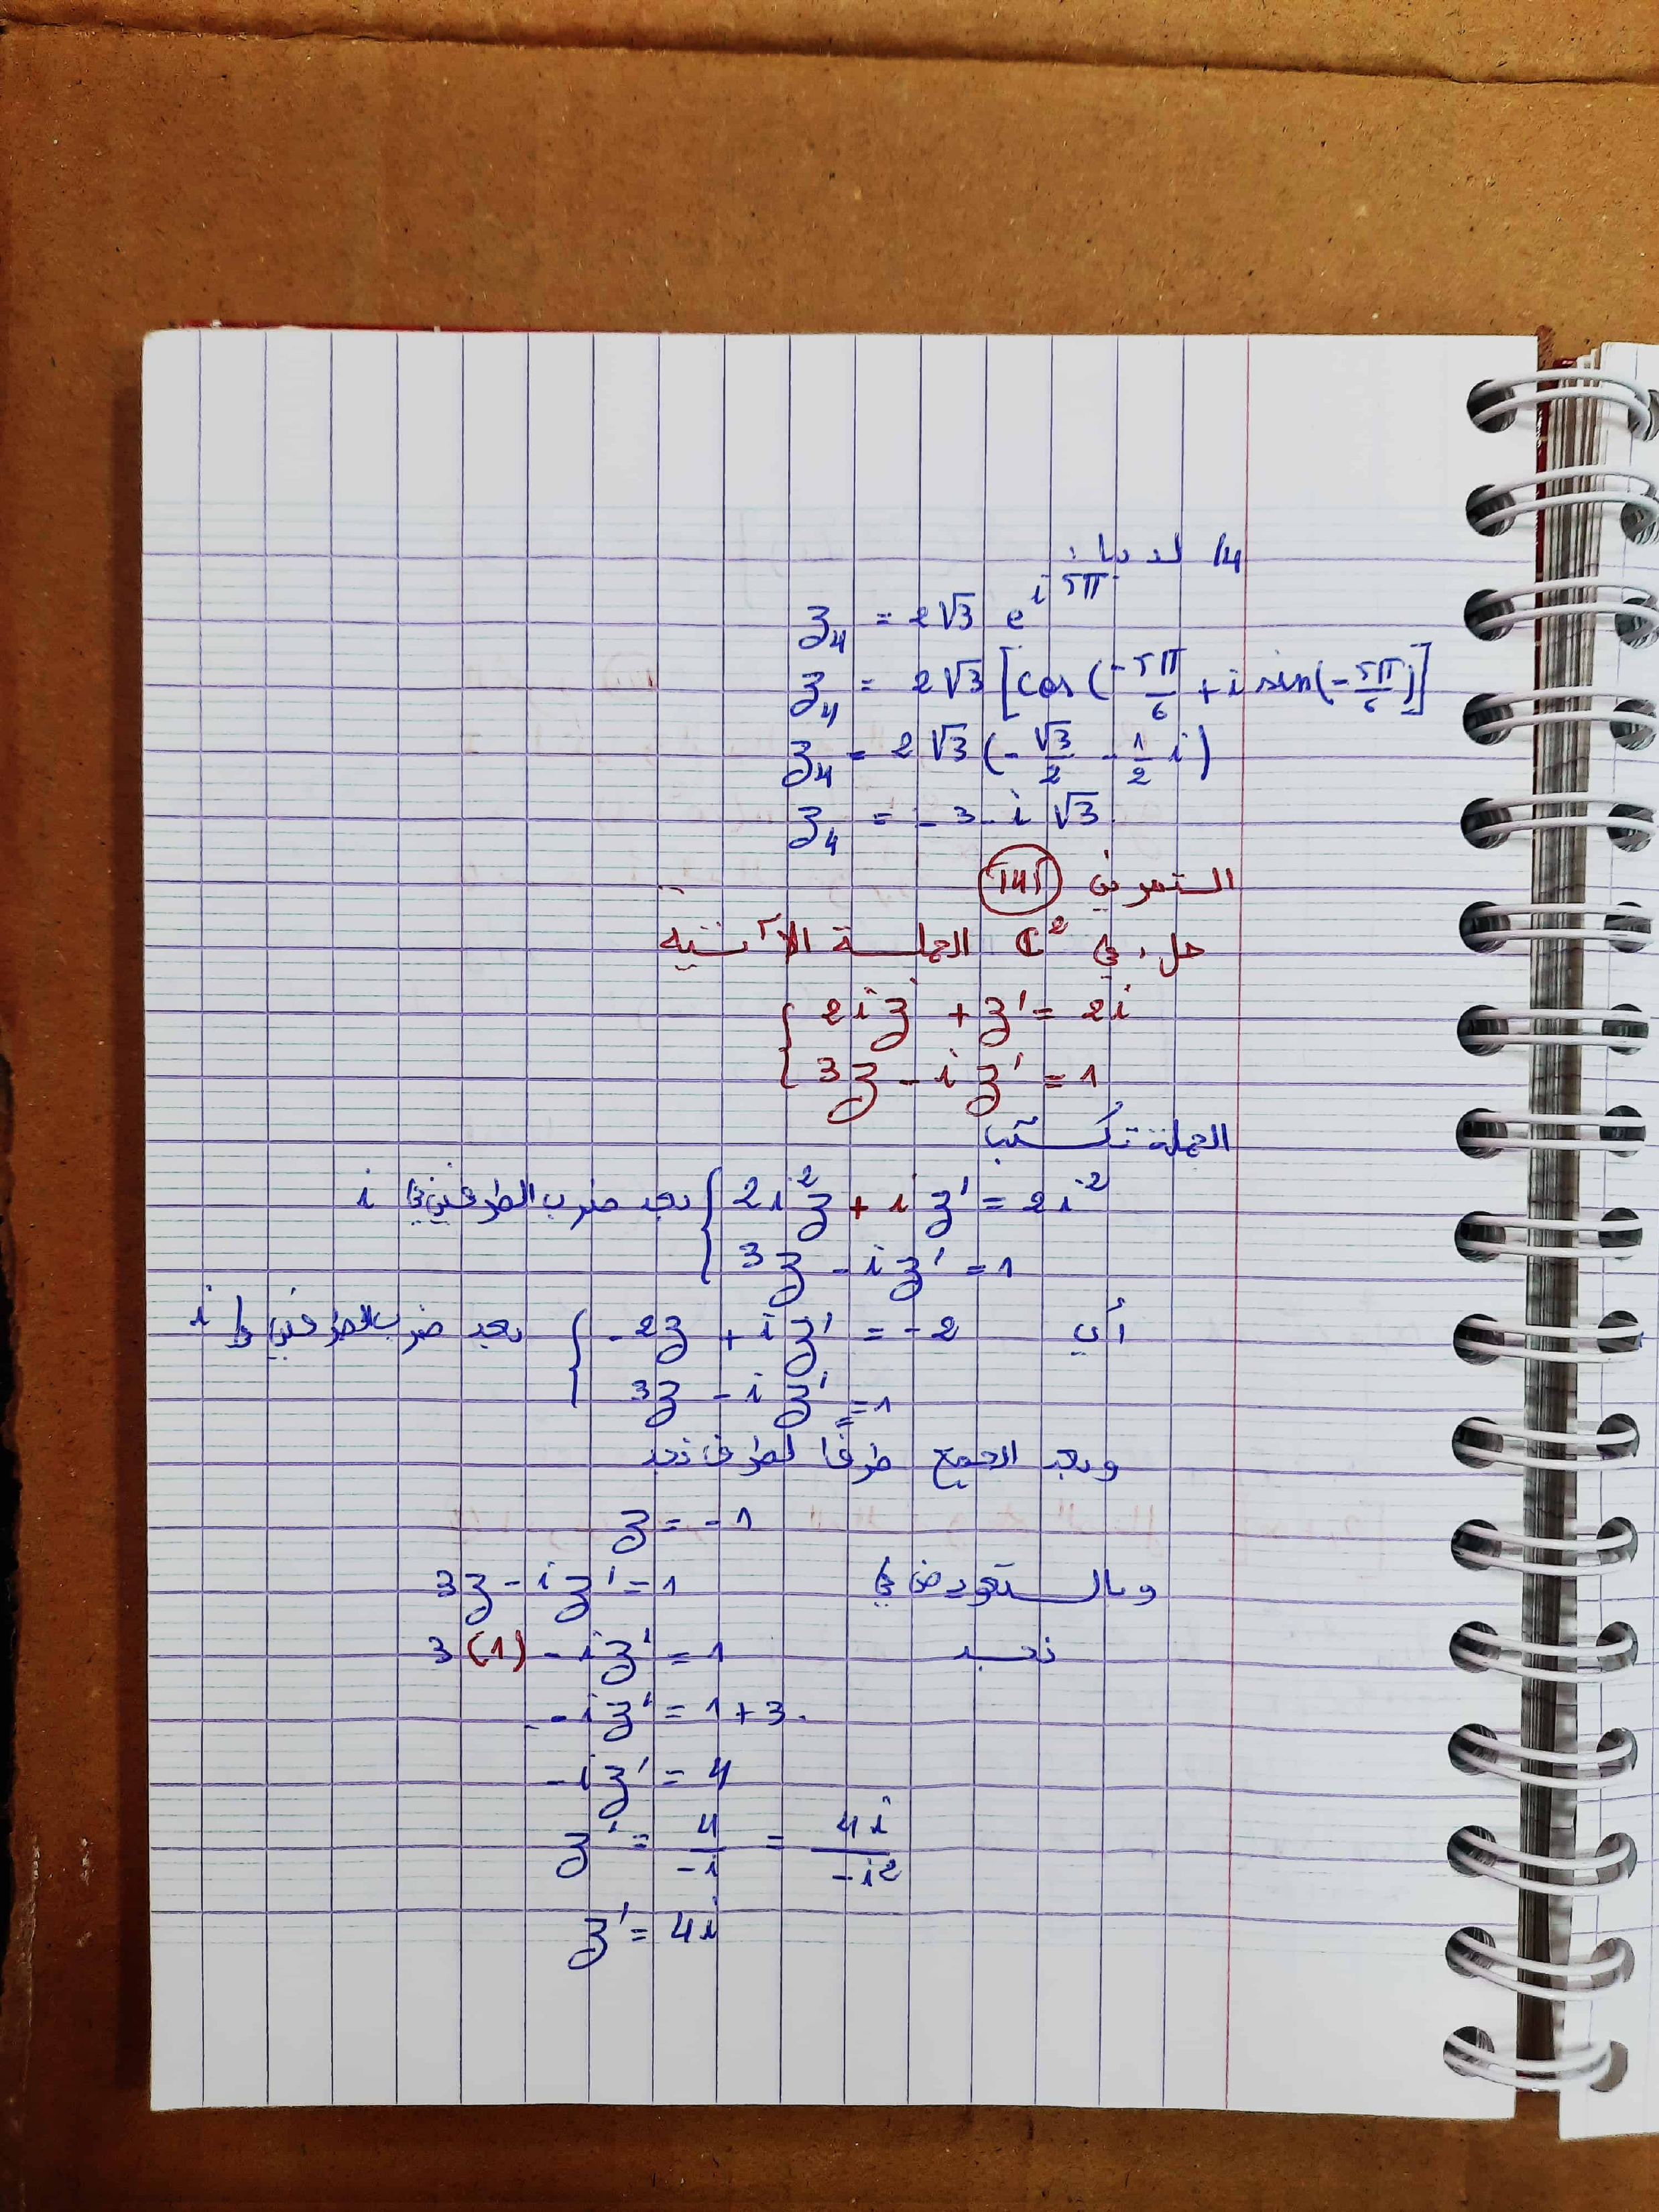 4/ لدينا:
z₄ = 2√3 e^{i 5π}
z₄ = 2√3 [cos(-5π/6 + i sin(-5π/6)]
z₄ = 2√3 (-√3/2 - 1/2 i)
z₄ = -3 - i√3
التمرين 141
حل، في ℂ² الجملة الآتية
{ 2iz + z' = 2i
{ 3z - iz' = 1
الجملة تكتب
{ 2i²z + iz' = 2i² بعد ضرب الطرفين في i
{ 3z - iz' = 1
أي { -2z + iz' = -2 بعد ضرب الطرفين في i
{ 3z - iz' = 1
وبعد الجمع طرفا لطرف نجد
z = -1
وبالتعويض في 3z - iz' = 1
نجد 3(1) - iz' = 1
-iz' = 1+3.
-iz' = 4
z' = 4/-i = 4i/-i²
z' = 4i